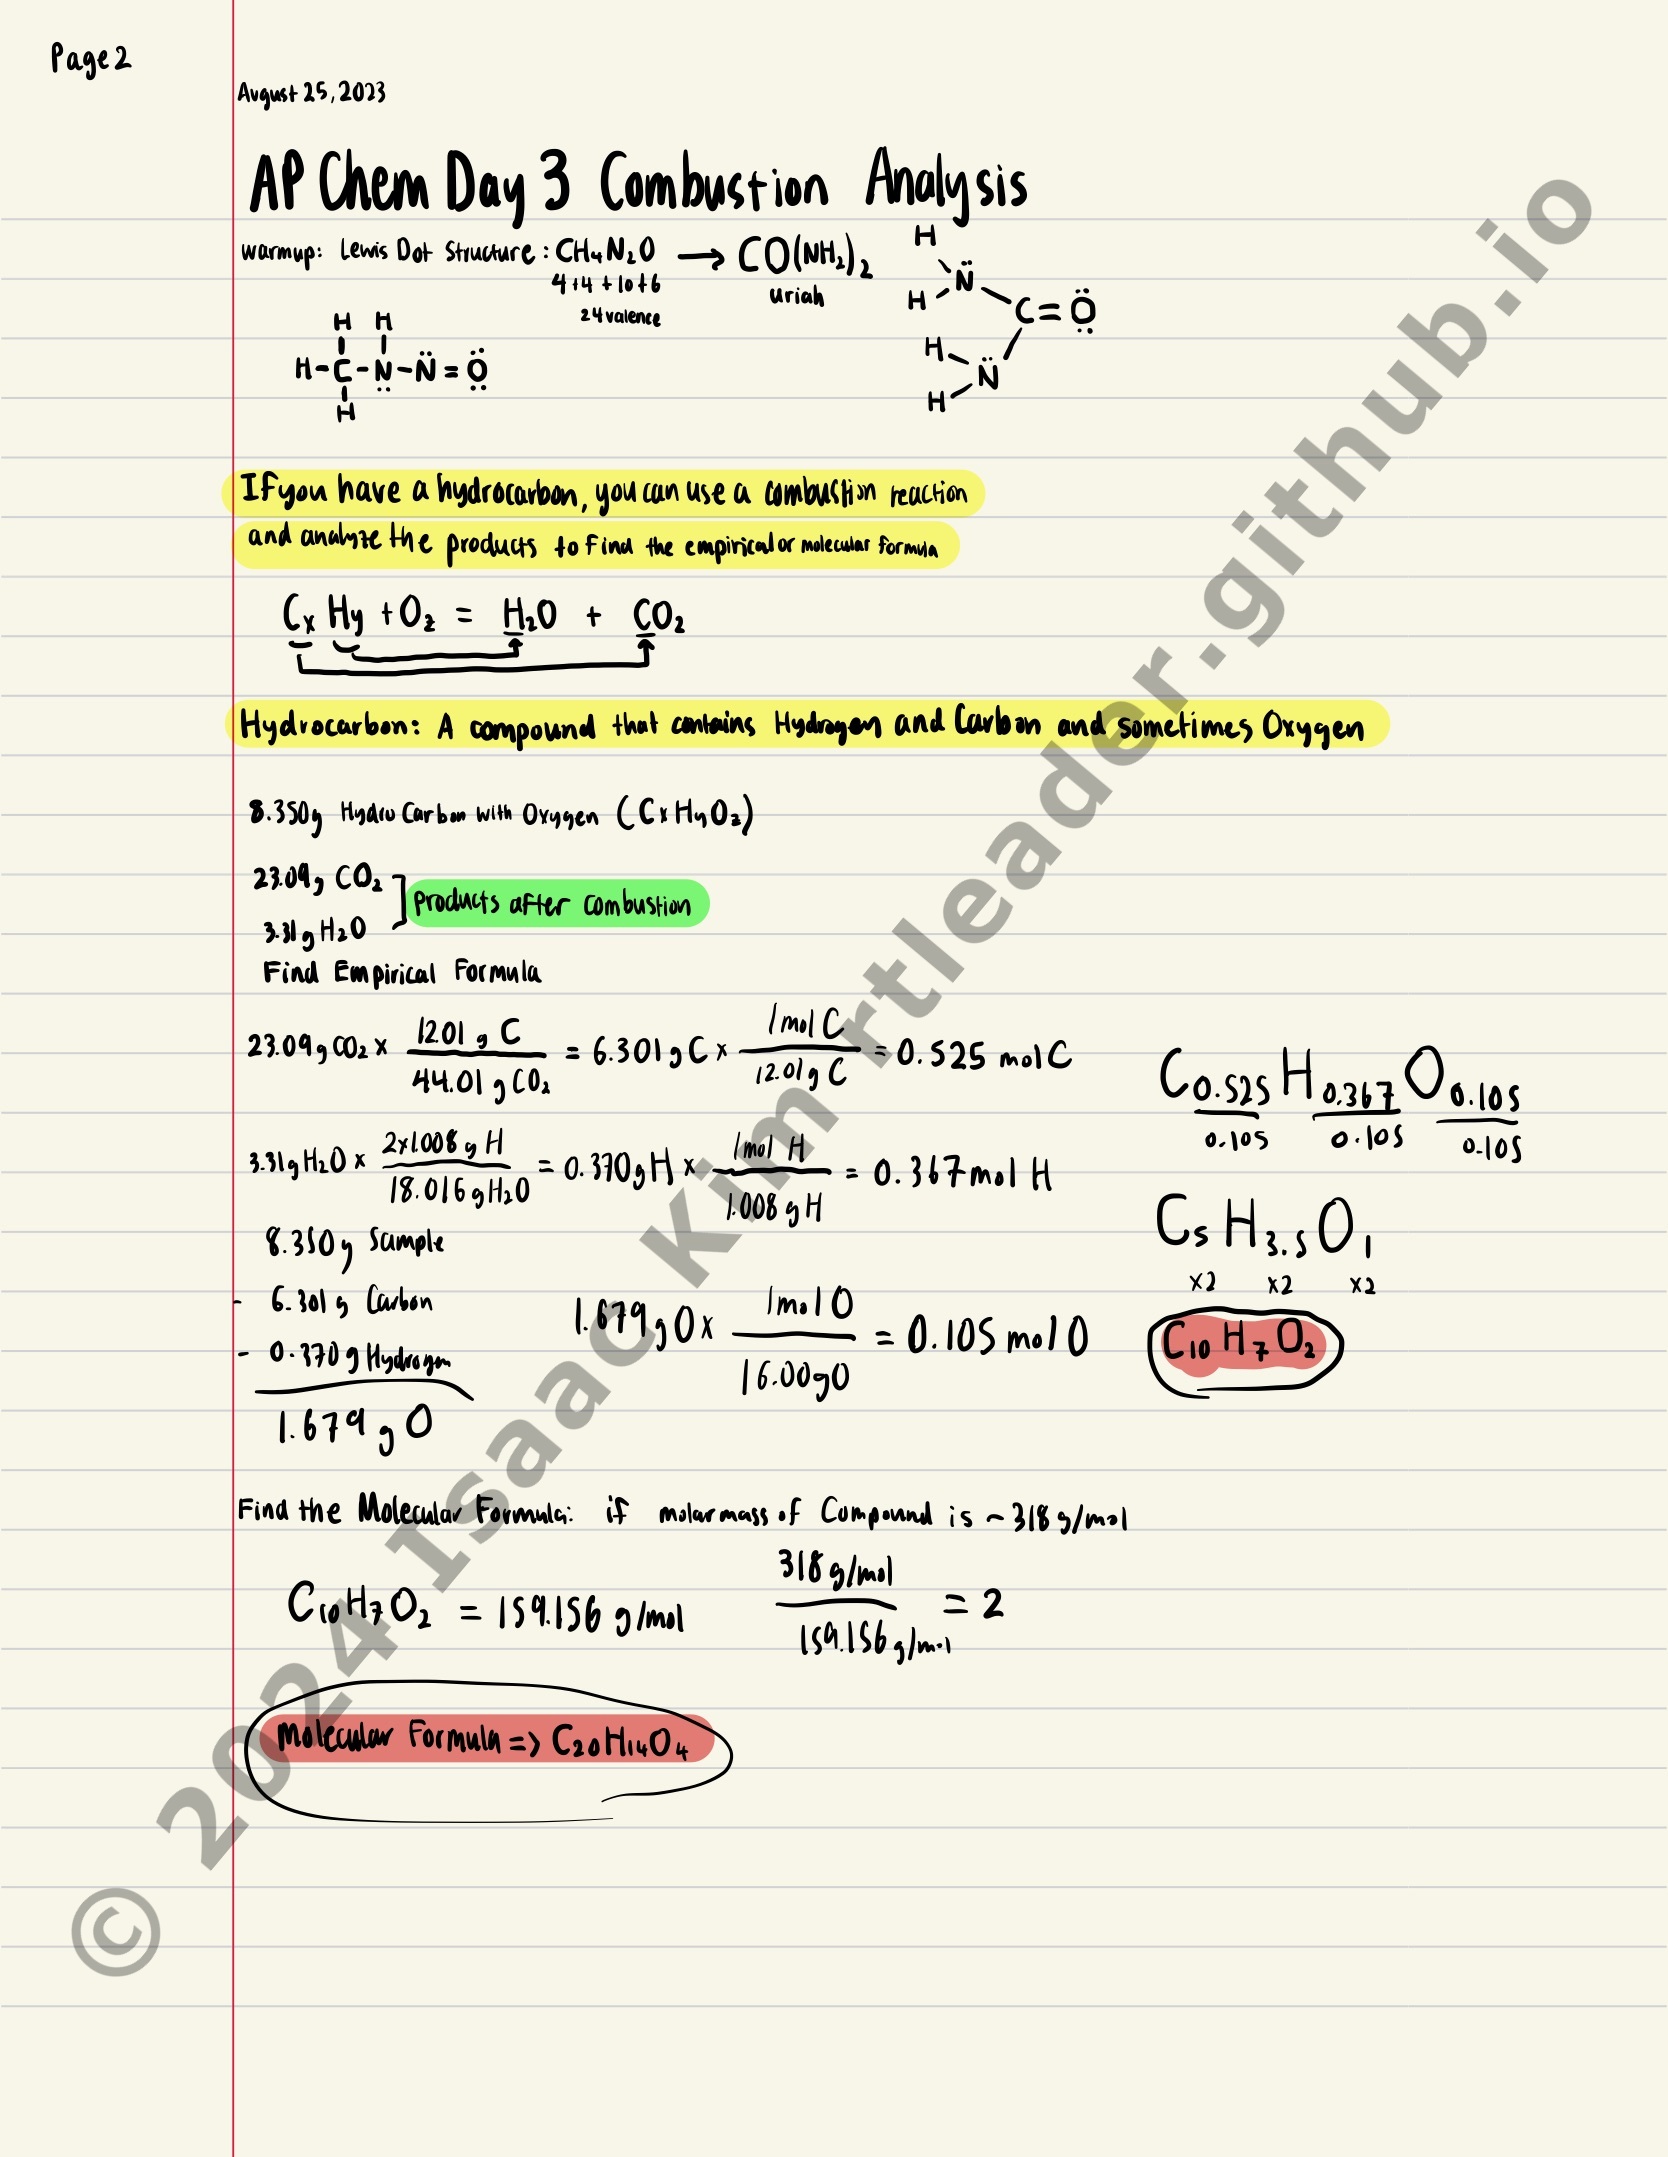 Page 2
August 25, 2023
AP Chem Day 3 Combustion Analysis
warmup: Lewis Dot Structure: CH₄N₂O → CO(NH₂)₂
4+4+10+6
uriah
24 valence
H H
H-C-N-N=O
H
H
N
H
C=O
H
N
H
If you have a hydrocarbon, you can use a combustion reaction
and analyze the products to find the empirical or molecular formula
CxHy + O₂ = H₂O + CO₂
Hydrocarbon: A compound that contains Hydrogen and Carbon and sometimes Oxygen
8.350g Hydro Carbon with Oxygen (CxHyOz)
23.09g CO₂
Products after combustion
3.31g H₂O
Find Empirical Formula
23.09g CO₂ × 12.01 g C / 44.01 g CO₂ = 6.301 g C × 1 mol C / 12.01 g C = 0.525 mol C
C0.525 H0.367 O0.105
0.105 0.105 0.105
3.31g H₂O × 2×1.008 g H / 18.016 g H₂O = 0.370g H × 1 mol H / 1.008 g H = 0.367 mol H
C₅ H3.5 O₁
×2 ×2 ×2
C₁₀ H₇ O₂
8.350g Sample
- 6.301 g Carbon
- 0.370 g Hydrogen
1.679 g O
1.679 g O × 1 mol O / 16.00 g O = 0.105 mol O
Find the Molecular Formula: if molar mass of Compound is ~318 g/mol
C₁₀H₇O₂ = 159.156 g/mol
318 g/mol / 159.156 g/mol = 2
Molecular Formula => C₂₀H₁₄O₄
© 2024 Isaac Kim rtleader.github.io